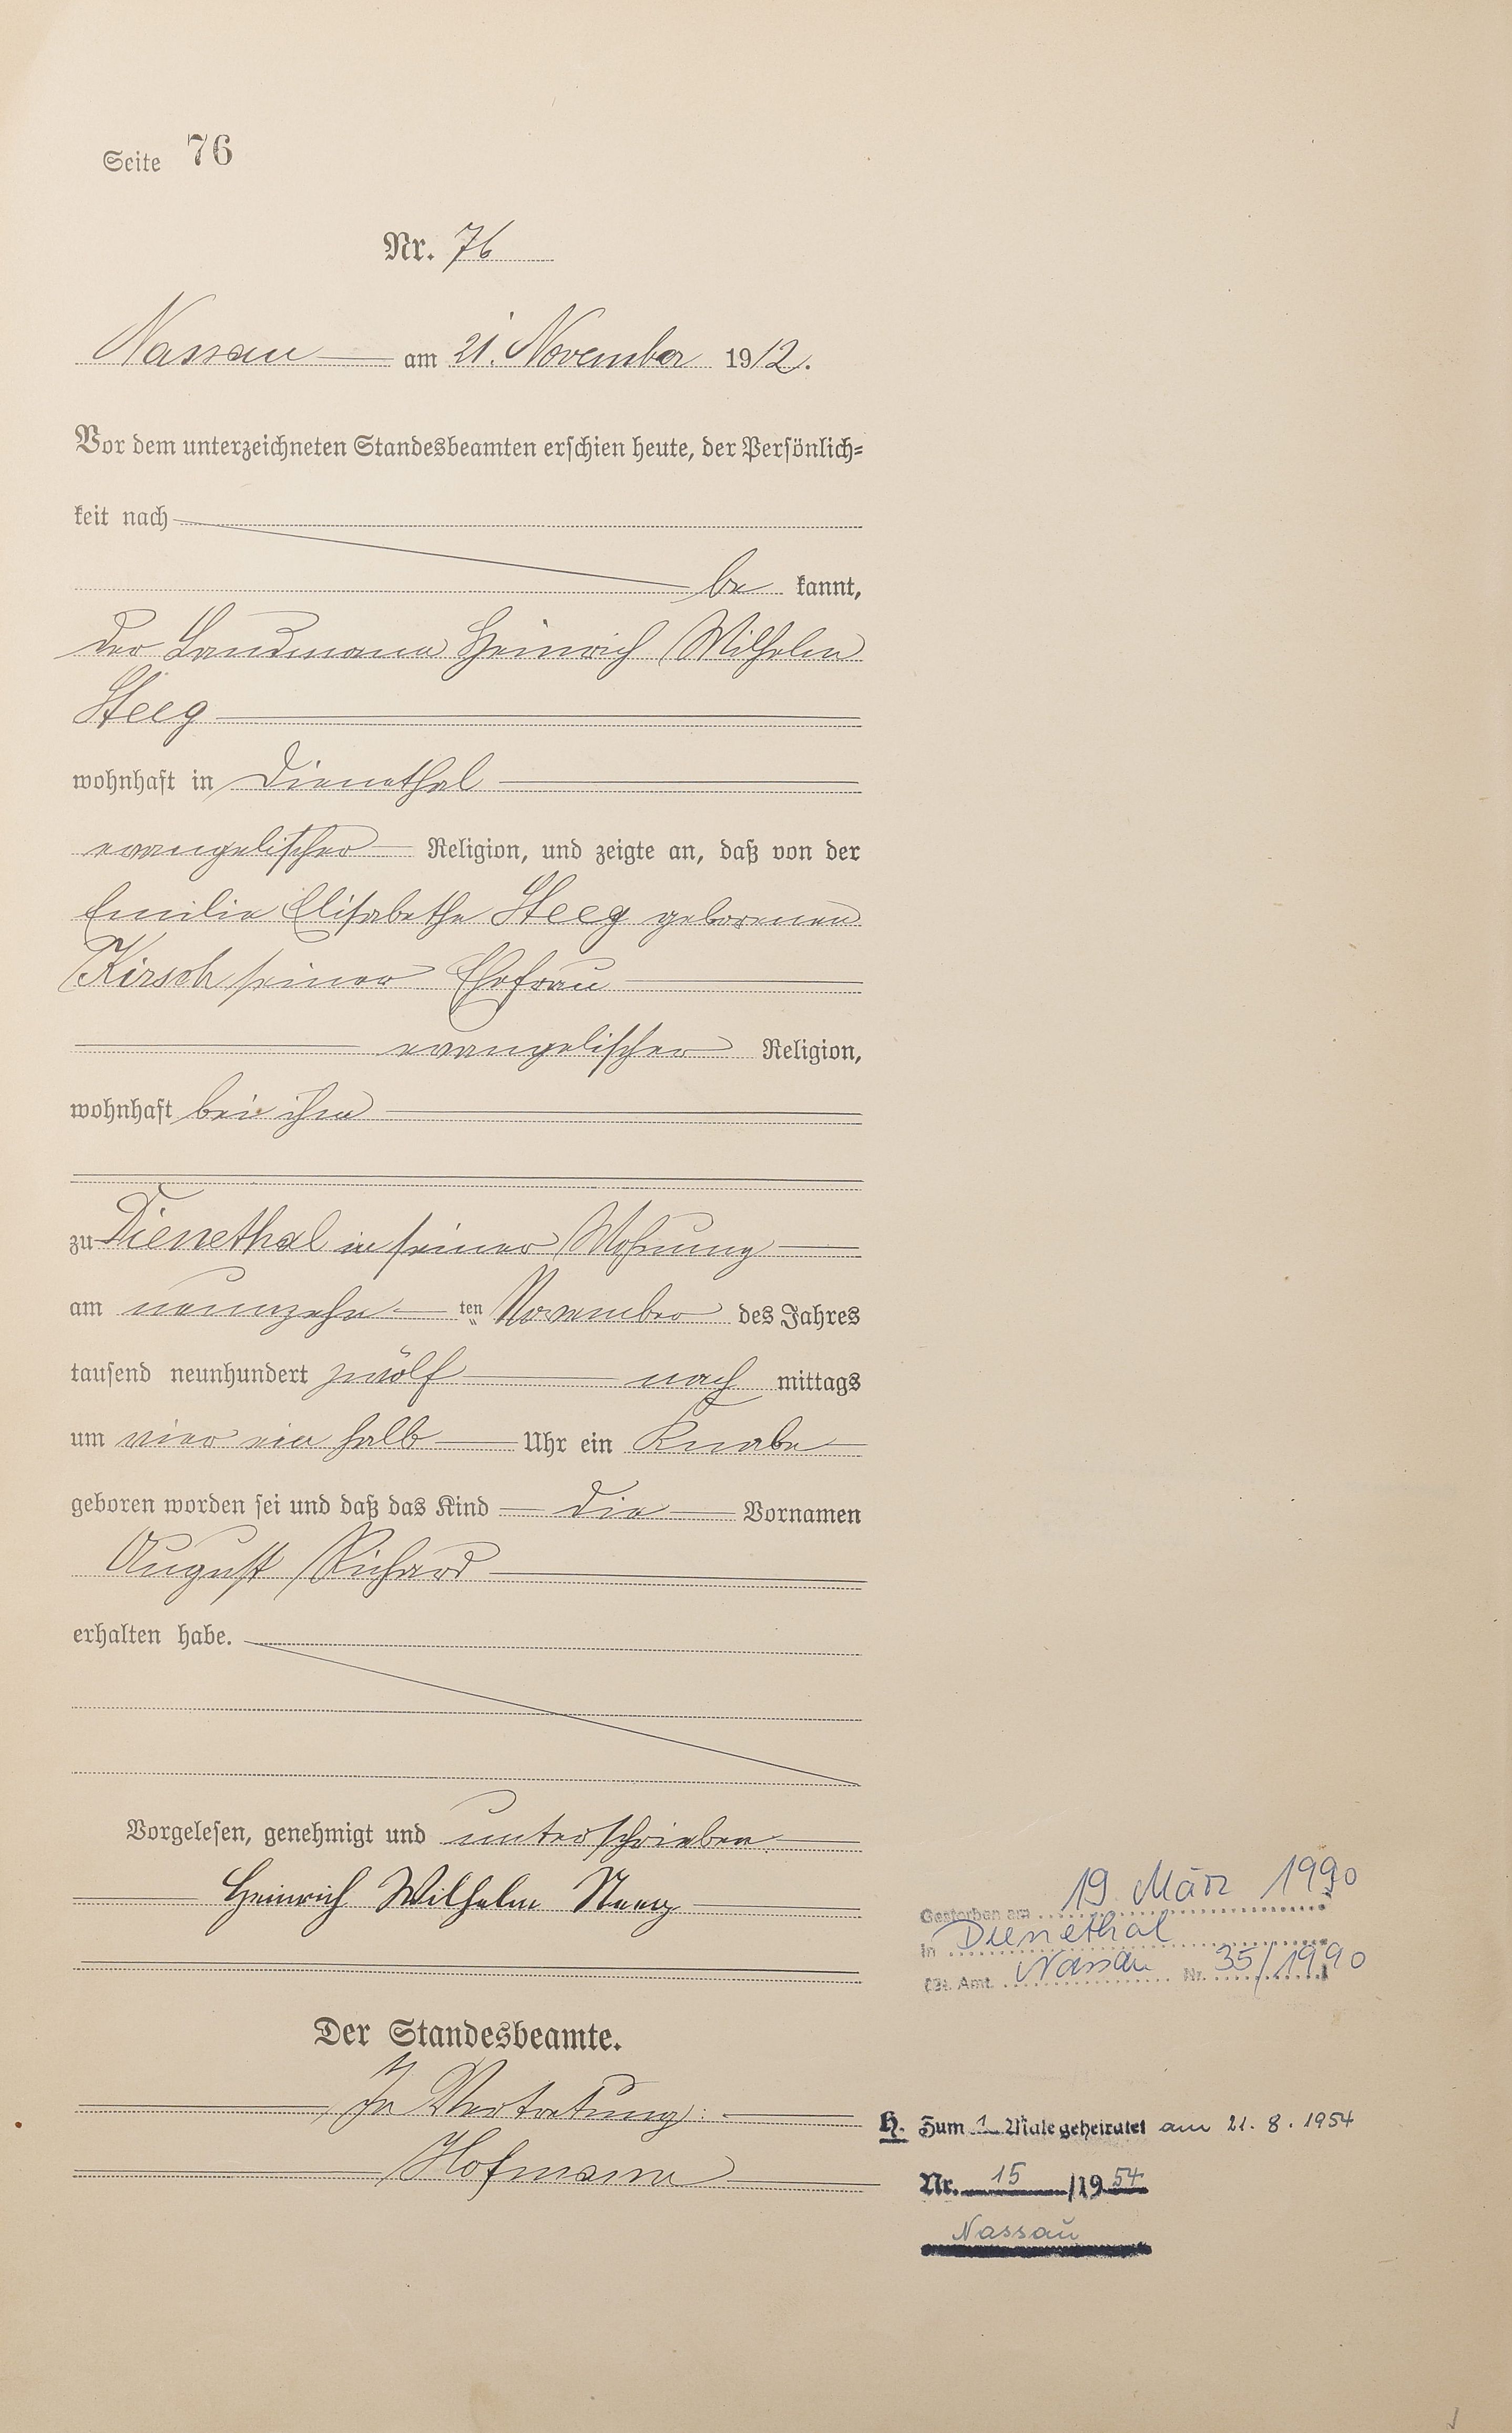 Seite 76
Nr. 76
Nassau am 21. November 1912.
Vor dem unterzeichneten Standesbeamten erschien heute, der Persönlich-
keit nach
be kannt,
der Landmann Heinrich Wilhelm
Steeg
wohnhaft in Dienethal
evangelischer Religion, und zeigte an, daß von der
Emilie Elisabethe Steeg geborenen
Kirsch seiner Ehefrau
evangelischer Religion,
wohnhaft bei ihm
zu Dienethal in seiner Wohnung
am neunzehn ten November des Jahres
tausend neunhundert zwölf nach mittags
um vier ein halb Uhr ein Knabe
geboren worden sei und daß das Kind die Vornamen
August Richard
erhalten habe.
Vorgelesen, genehmigt und unterschrieben.
Heinrich Wilhelm Steeg
Der Standesbeamte.
In Vertretung:
Hofmann
Gestorben am 19. März 1990
in Dienethal
St. Amt. Nassau Nr. 35/1990
H. Zum 1 Male geheiratet am 21.8.1954
Nr. 15/1954
Nassau